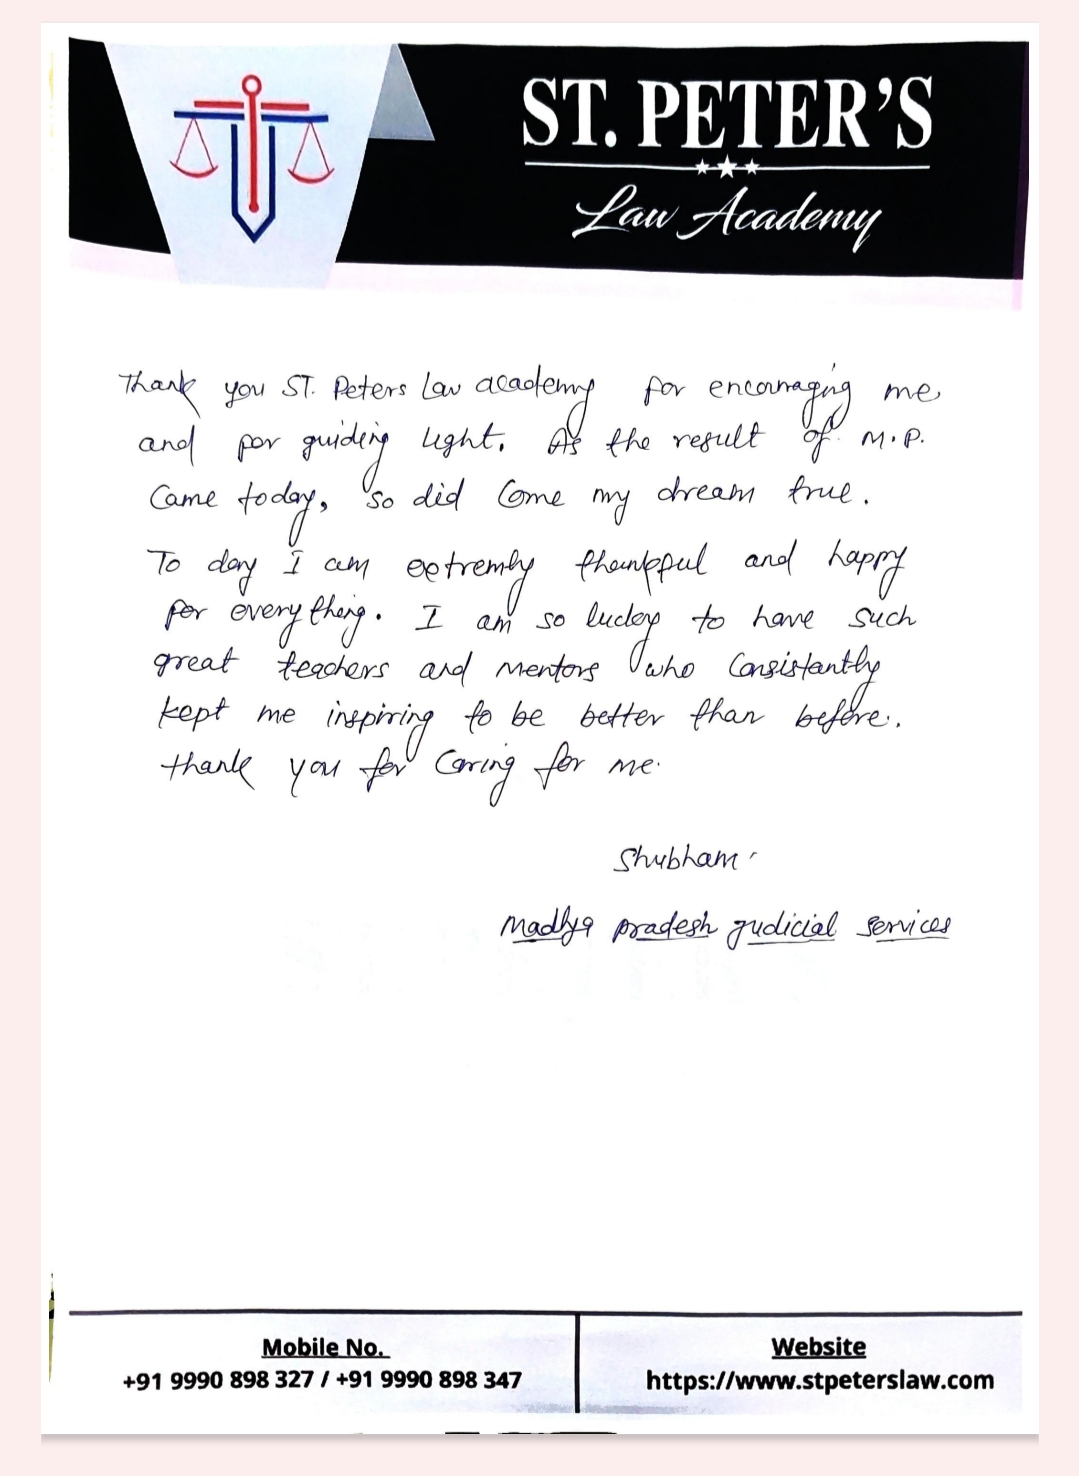 ST. PETER'S
Law Academy
Thank you ST. Peters Law academy for encouraging me
and for guiding light. As the result of M.P.
Came today, so did Come my dream true.
To day I am extremly thankful and happy
for everything. I am so lucky to have such
great teachers and mentors who Consistantly
kept me inspiring to be better than before.
thank you for Caring for me.
Shubham
Madhya pradesh judicial services
Mobile No.
+91 9990 898 327 / +91 9990 898 347
Website
https://www.stpeterslaw.com